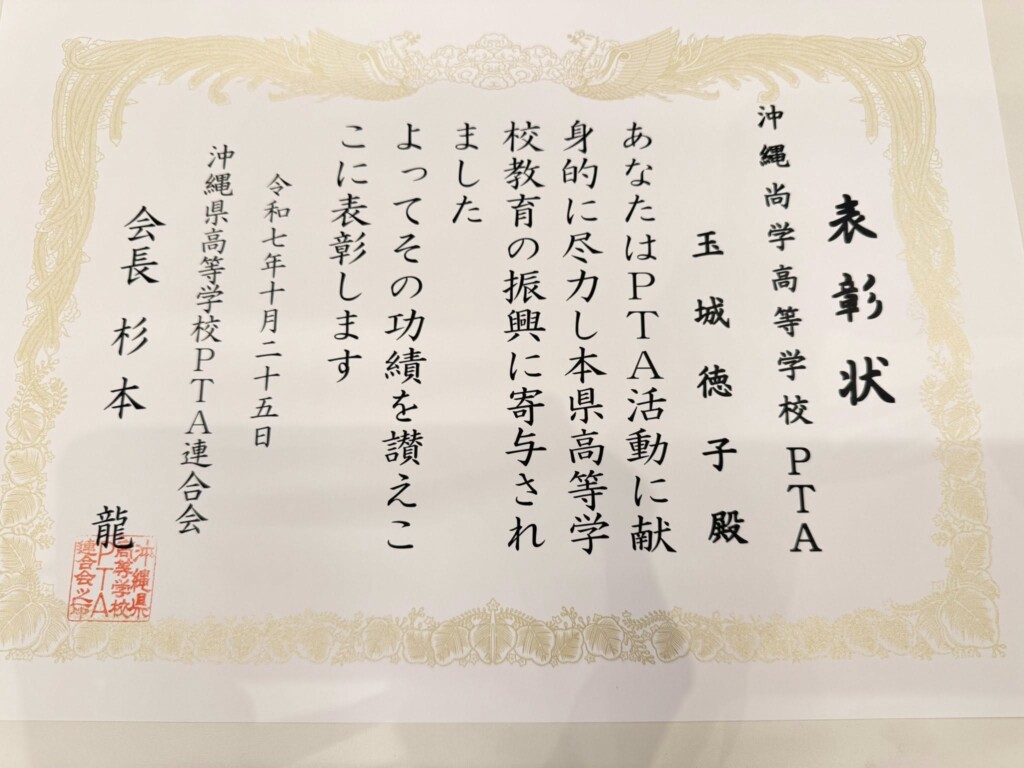 表彰状
沖縄尚学高等学校PTA
玉城徳子殿
あなたはPTA活動に献
身的に尽力し本県高等学
校教育の振興に寄与され
ました
よってその功績を讃えこ
こに表彰します
令和七年十月二十五日
沖縄県高等学校PTA連合会
会長 杉本 龍
沖縄県
高等学校
PTA
連合会之印